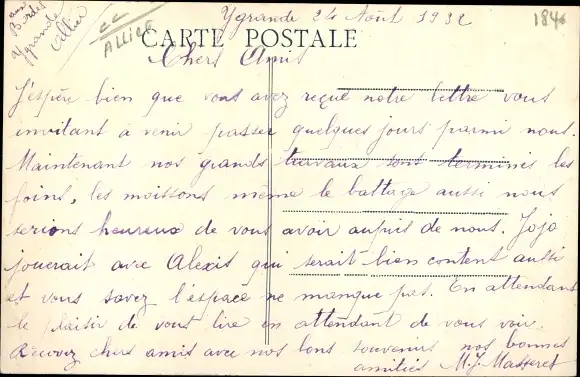 aux
Bordes
a/ Ygrande
Allier
cc
ALLIER
Ygrande 24 Août 1932
184
CARTE POSTALE
Chers Amis
J'espère bien que vous avez reçue notre lettre vous
invitant à venir passer quelques jours parmi nous.
Maintenant nos grands travaux sont terminés les
foins, les moissons même le battage aussi nous
serions heureux de vous avoir auprès de nous. Jojo
jouerait avec Alexis qui serait bien content aussi
et vous savez l'espace ne manque pas. En attendant
le plaisir de vous lire en attendant de vous voir.
Recevez chers amis avec nos bons souvenirs nos bonnes
amitiés M.J. Masseret